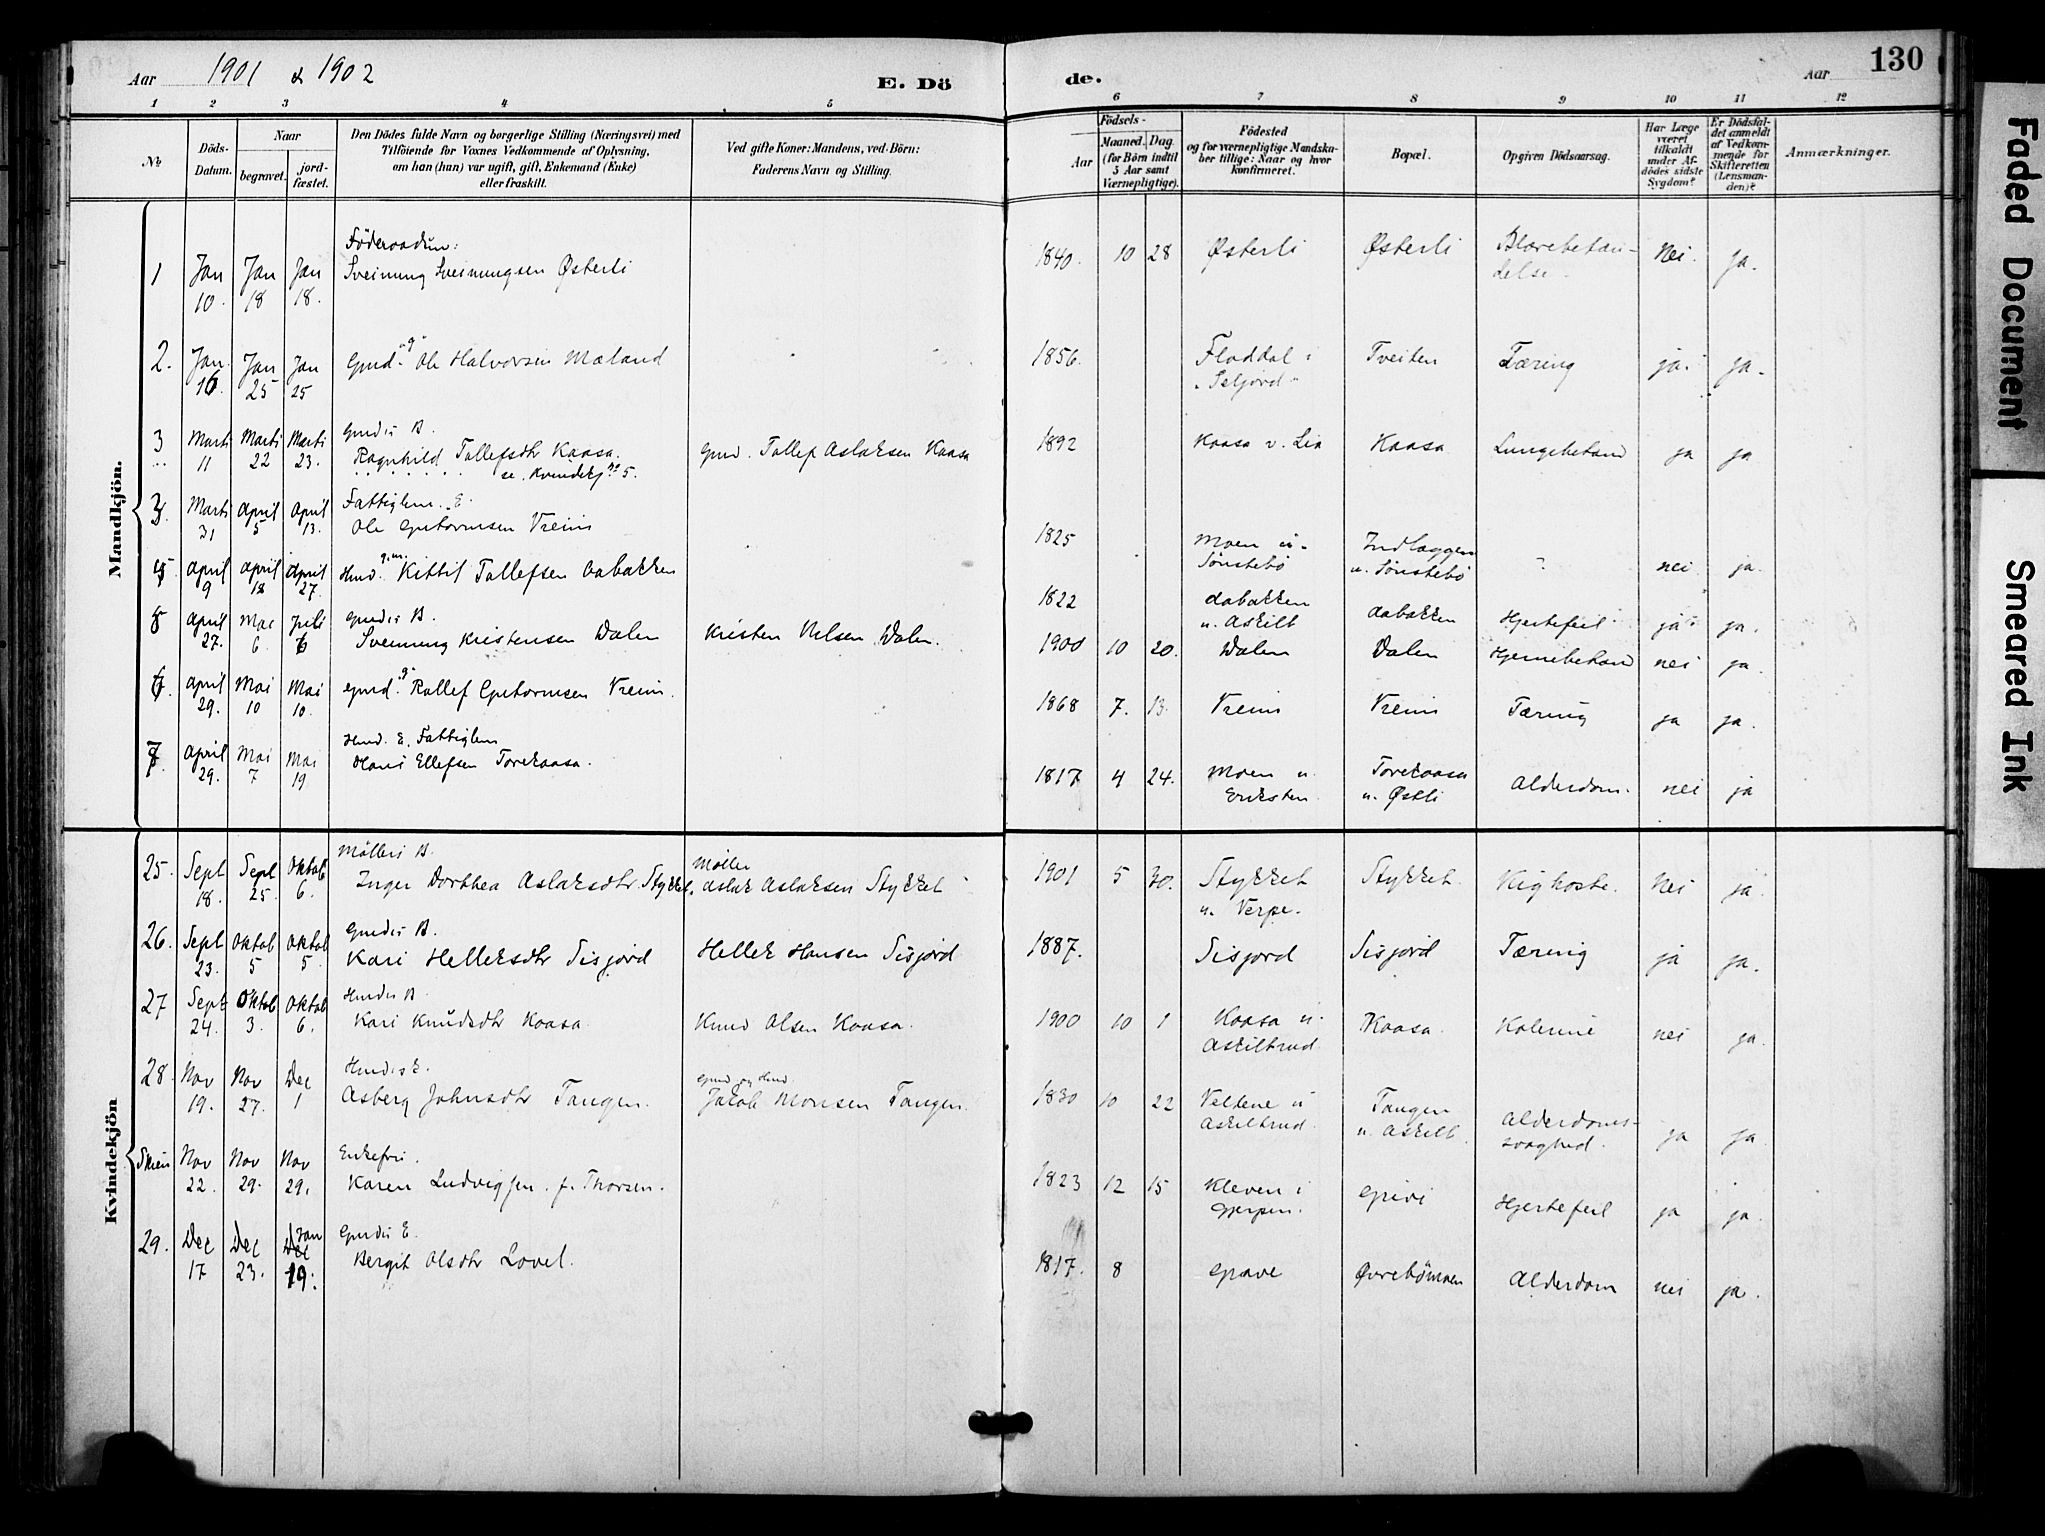 Aar 1901 & 1902 E. Dö de. Aar 130
1 2 3 4 5 6 7 8 9 10 11 12
No.
Döds-
Datum.
Naar
begravet.
jord-
fæstet.
Den Dödes fulde Navn og borgerlige Stilling (Næringsvei) med
Tilföiende for Voxnes Vedkommende af Oplysning,
om han (hun) var ugift, gift, Enkemand (Enke)
eller fraskilt.
Ved gifte Koner: Mandens, ved Börn:
Faderens Navn og Stilling.
Födsels-
Aar
Maaned. Dag.
(for Börn indtil
5 Aar samt
Værnepligtige).
Födested
og for værnepligtige Mandska-
ber tillige: Naar og hvor
konfirmeret.
Bopæl.
Opgiven Dödsaarsag.
Har Læge
været
tilkaldt
under Af-
dödes sidste
Sygdom?
Er Dödsfal-
det anmeldt
af Vedkom-
mende for
Skifteretten
(Lensman-
den)?
Anmærkninger.
Mandkjön.
1 Jan 10. Jan 18 Jan 18. Föderaadsm: Sveinung Sveinungsen Østerli 1840. 10 28 Østerli Østerli Blærebetæn-delse. Nei. ja.
2. Jan. 16. Jan 25 Jan 25 Gmd. "g" Ole Halvorsen Mæland 1856. Floddal i "Seljord" Tveiten Tæring ja. ja.
3 Marts 11 Marts 22 Marts 23. Gmds B. Ragnhild Tollefsdtr Kaasa. se. Kvindekj no 5. Gmd. Tollef Aslaksen Kaasa 1892 Kaasa v. Lia Kaasa Lungebetænd ja ja
3. Marts 31 April 5 April 13. Fattiglem. E. Ole Guttormsen Vreim 1825 Moen u. Sønstebö Indlæggen u. Sønstebö ? nei ja.
4 April 9 April 18 April 27. Hmd. g.m. Kittil Tollefsen Aabakken 1822 Aabakken u. Askilt Aabakken Hjertefeil ja ja.
5 April 27. Mai 6. Juli 6 Gmds B. Sveinung Kristensen Dalen Kristen Nilsen Dalen. 1900 10 20. Dalen Dalen Hjernebetænd nei ja.
6. April 29. Mai 10 Mai 10. Gmd. g Rollef Guttormsen Vreim. 1868 7. 13. Vreim Vreim Tæring ja ja.
7 April 29. Mai 7 Mai 19 Hmd. E. Fattiglem Hans Ellefsen Torekaasa. 1817 4 24. Moen u. Eriksten. Torekaasa u. Østli Alderdom. nei ja
Kvindekjön
25. Sept 18. Sept 25. Oktob 6. Mølleri B. Inger Dorthea Aslaksdtr Stykket. Møller Aslak Aslaksen Stykket 1901 5 30. Stykket u. Verpe. Stykket. Kighoste. Nei ja.
26. Sept 23. Oktob 5 Oktob 5. Gmds B. Kari Helleksdtr Sisjord Hellek Hansen Sisjord 1887. Sisjord Sisjord Tæring ja ja.
27 Sept 24. Oktob 3. Oktob 6. Hmds B Kari Knudsdtr Kaasa. Knud Olsen Kaasa. 1900 10 1 Kaasa u. Askiltrud. Kaasa. Kolerine nei ja.
28. Nov 19. Nov 27. Dec 1 Hmds E. Asberg Johnsdtr Tangen. Gmd og Hmd Jakob Monsen Tangen. 1830 10 22 Veltene u Askiltrud. Tangen u. Askilt. Alderdoms-svaghed. ja ja.
Skien Nov 22. Nov 29. Nov 29. Enkefru. Karen Ludvigsen. f. Thorsen. 1823 12 15 Kleven i Gjerpen. Grivi Hjertefeil ja ja.
29. Dec 17 Dec 23. Dec Jan 19. Gmds E. Bergit Olsdtr Lovel. 1817. 8 Grave Øvrebömoen Alderdom nei ja.
Faded Document
Smeared Ink